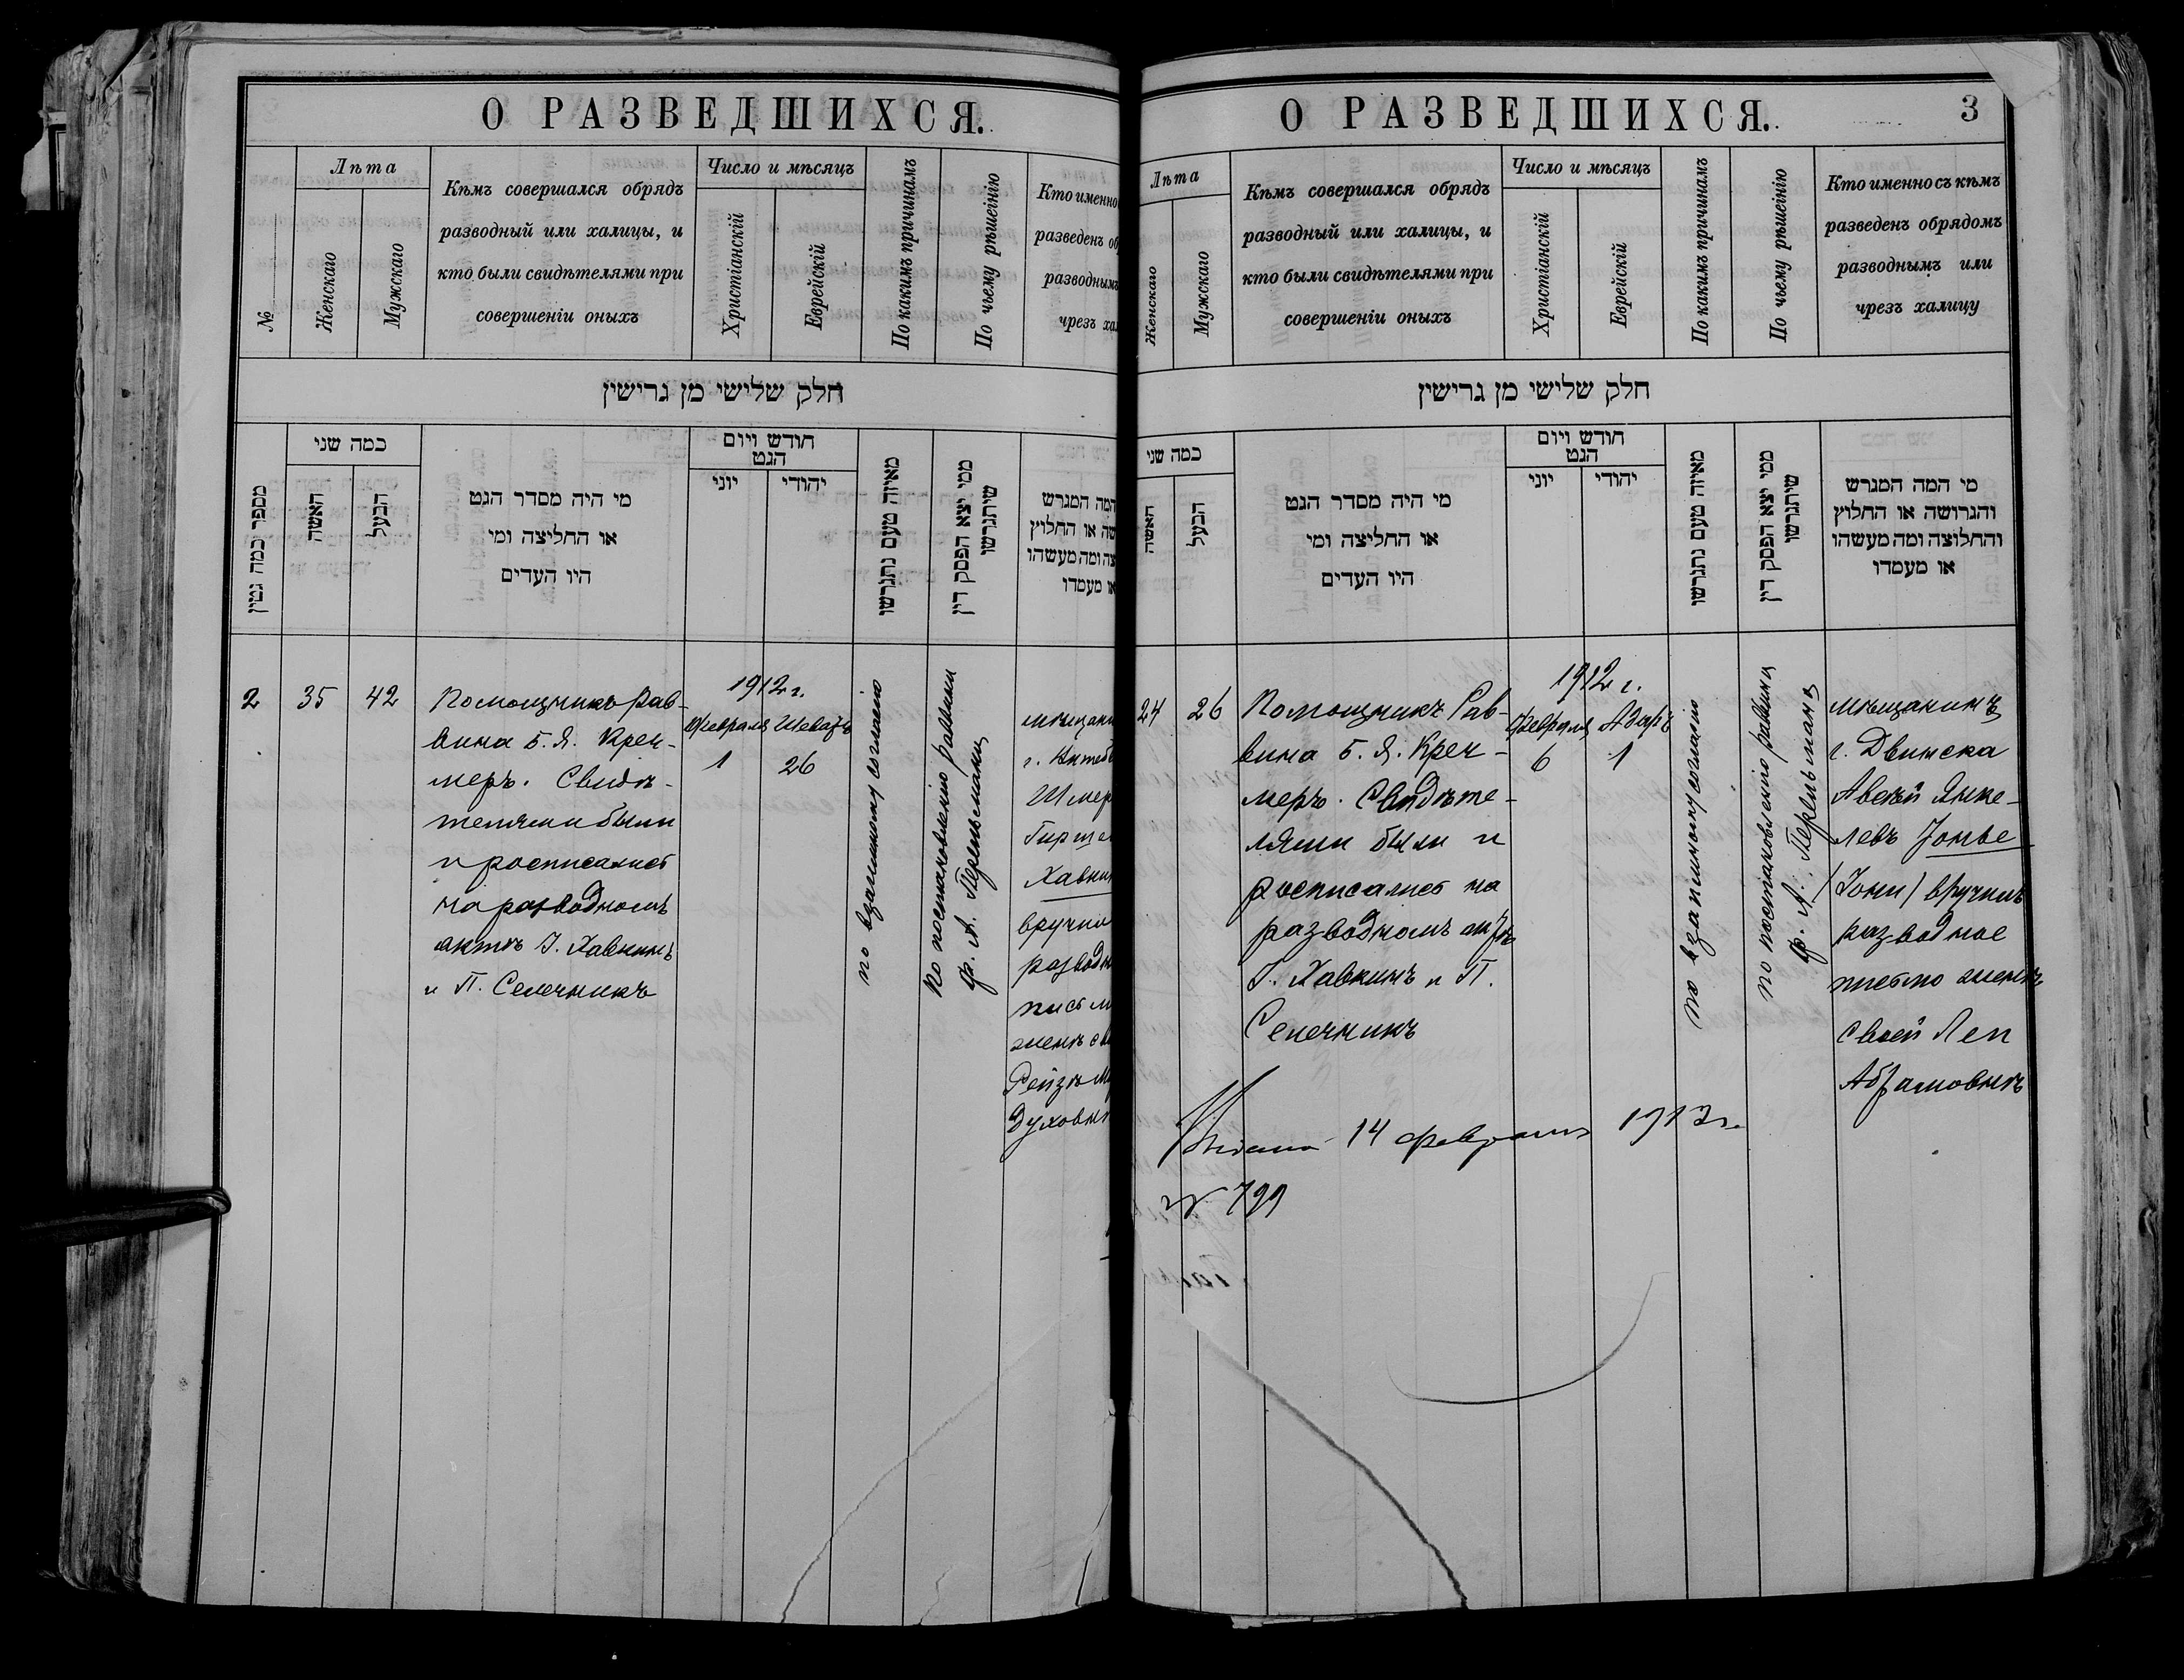 О РАЗВЕДШИХСЯ.
№
Лѣта
Женскаго
Мужскаго
Кѣмъ совершался обрядъ
разводный или халицы, и
кто были свидѣтелями при
совершеніи оныхъ
Число и мѣсяцъ
Христіанскій
Еврейскій
По какимъ причинамъ
По чьему рѣшенію
Кто именно
разведенъ об
разводнымъ
чрезъ хал
חלק שלישי מן גרישין
מספר כמה גטין
כמה שני
האשה
הבעל
מי היה מסדר הגט
או החליצה ומי
היו העדים
חודש ויום
הגט
יוני
יהודי
מאיזה טעם נתגרשו
ממי יצא הפסק דין
שיתגרשו
המה המגרש
שה או החלוץ
צה ומה מעשהו
או מעמדו
2
35
42
Помощникъ Рав-
вина Б. Я. Креч-
меръ. Свидѣ-
телями были
и росписались
на разводномъ
актѣ І. Хавкинъ
и П. Селечникъ
1912 г.
Февраля Шеватъ
1 26
по взаимному согласію
по постановленію раввина
Ф. А. Перельмана
мѣщани
г. Витеб
Шмер
Гирше
Хавки
вручил
разводн
письм
женѣ св
Рейзѣ М
Духовн
О РАЗВЕДШИХСЯ.
3
Лѣта
Женскаго
Мужскаго
Кѣмъ совершался обрядъ
разводный или халицы, и
кто были свидѣтелями при
совершеніи оныхъ
Число и мѣсяцъ
Христіанскій
Еврейскій
По какимъ причинамъ
По чьему рѣшенію
Кто именно съ кѣмъ
разведенъ обрядомъ
разводнымъ или
чрезъ халицу
חלק שלישי מן גרישין
כמה שני
האשה
הבעל
מי היה מסדר הגט
או החליצה ומי
היו העדים
חודש ויום
הגט
יוני
יהודי
מאיזה טעם נתגרשו
ממי יצא הפסק דין
שיתגרשו
מי המה המגרש
והגרושה או החלוץ
והחלוצה ומה מעשהו
או מעמדו
24
26
Помощникъ Рав-
вина Б. Я. Креч-
меръ. Свидѣте-
лями были и
росписались на
разводномъ актѣ
І. Хавкинъ и П.
Селечникъ
1912 г.
Февраля Адаръ
6 1
по взаимному согласію
по постановленію раввина
Ф. А. Перельмана
мѣщанинъ
г. Двинска
Авсѣй Янке-
левъ Іонье
(Іони) вручилъ
разводное
письмо женѣ
своей Леи
Абрамовнѣ
14 февраля 1912 г.
№ 799